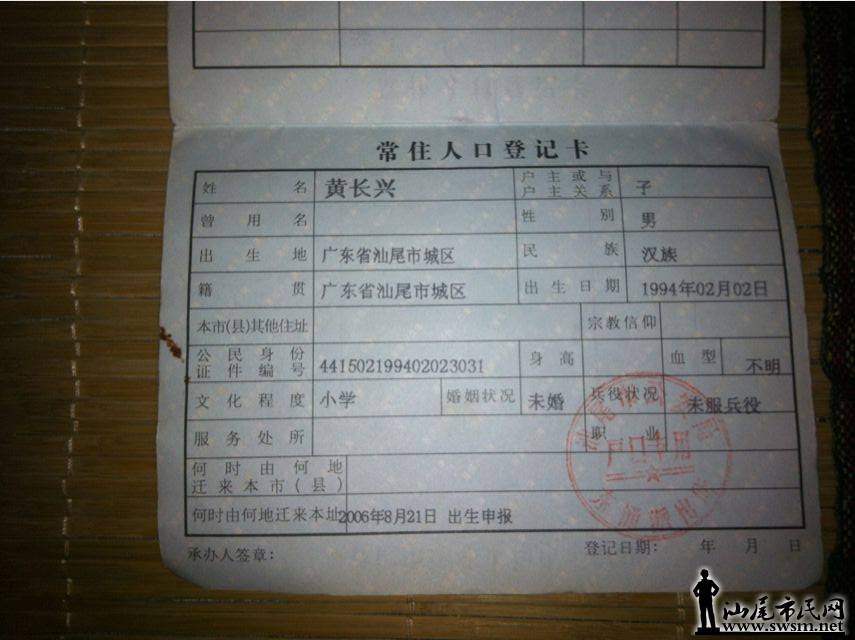 常住人口登记卡
姓名 黄长兴 户主或与户主关系 子
曾用名 性别 男
出生地 广东省汕尾市城区 民族 汉族
籍贯 广东省汕尾市城区 出生日期 1994年02月02日
本市(县)其他住址 宗教信仰
公民身份证件编号 441502199402023031 身高 血型 不明
文化程度 小学 婚姻状况 未婚 兵役状况 未服兵役
服务处所 职业
何时由何地迁来本市(县)
何时由何地迁来本址 2006年8月21日 出生申报
承办人签章: 登记日期: 年 月 日
户口专用
汕尾市民网
www.swsm.net